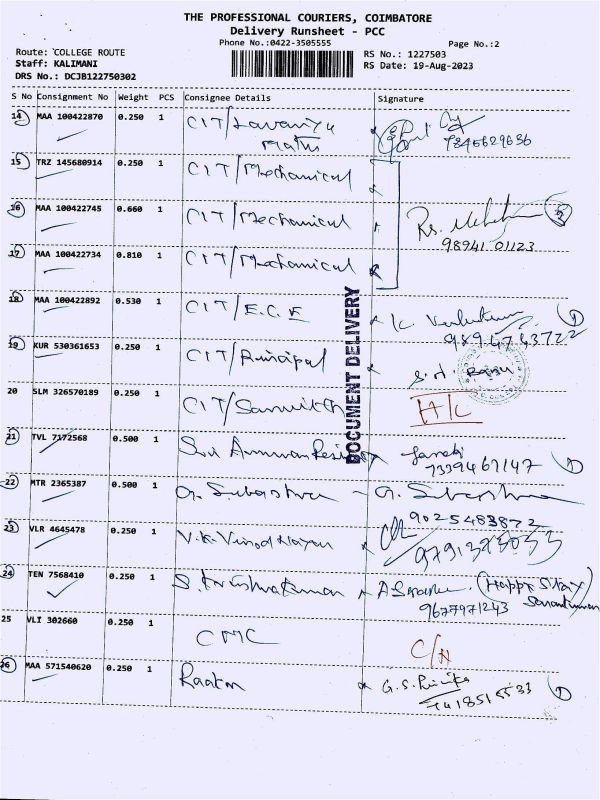 THE PROFESSIONAL COURIERS, COIMBATORE
Delivery Runsheet - PCC
Phone No.:0422-3505555
Page No.:2
Route: COLLEGE ROUTE
RS No.: 1227503
Staff: KALIMANI
RS Date: 19-Aug-2023
DRS No.: DCJB122750302
S No Consignment No Weight PCS Consignee Details Signature
14 MAA 100422870 0.250 1 CIT/Lavanya
Maths
7845629636
15 TRZ 145680914 0.250 1 CIT/Mechanical
16 MAA 100422745 0.660 1 CIT/Mechanical
98941 01123
17 MAA 100422734 0.810 1 CIT/Mechanical
18 MAA 100422892 0.530 1 CIT/E.C.E 1
9894743722
19 KUR 530361653 0.250 1 CIT/Principal
20 SLM 326570189 0.250 1 CIT/ H/C
DOCUMENT DELIVERY
21 TVL 7172568 0.500 1 Sri Amman Residency Janaki 1
7339467147
22 MTR 2365387 0.500 1 G. Subashree - G. Subashree
9025483872
23 VLR 4645478 0.250 1 V.K. Vinod Nayar
9791323033
24 TEN 7568410 0.250 1 S. Krishnakumar (Happy Stay)
9677971243 Saravanan
25 VLI 302660 0.250 1 CMC C/N
26 MAA 571540620 0.250 1 G.S. 1
7418515533